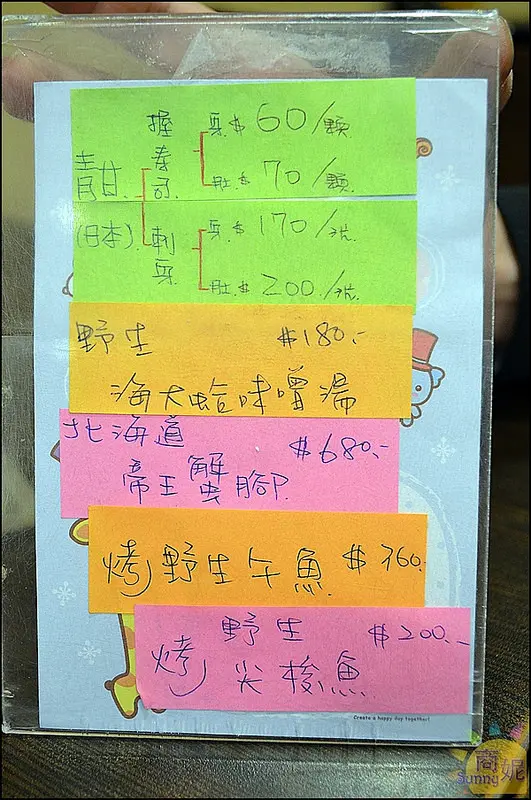 青甘
(日本)
握壽司
身 $ 60/顆
肚 $ 70/顆
刺身
身 $ 170/片
肚 $ 200/片
野生 $180.-
海大蛤味噌湯
北海道 $680.-
帝王蟹腳
烤野生午魚 $360.
野生 $200.-
烤尖梭魚
Create a happy day together!
商妮
Sunny